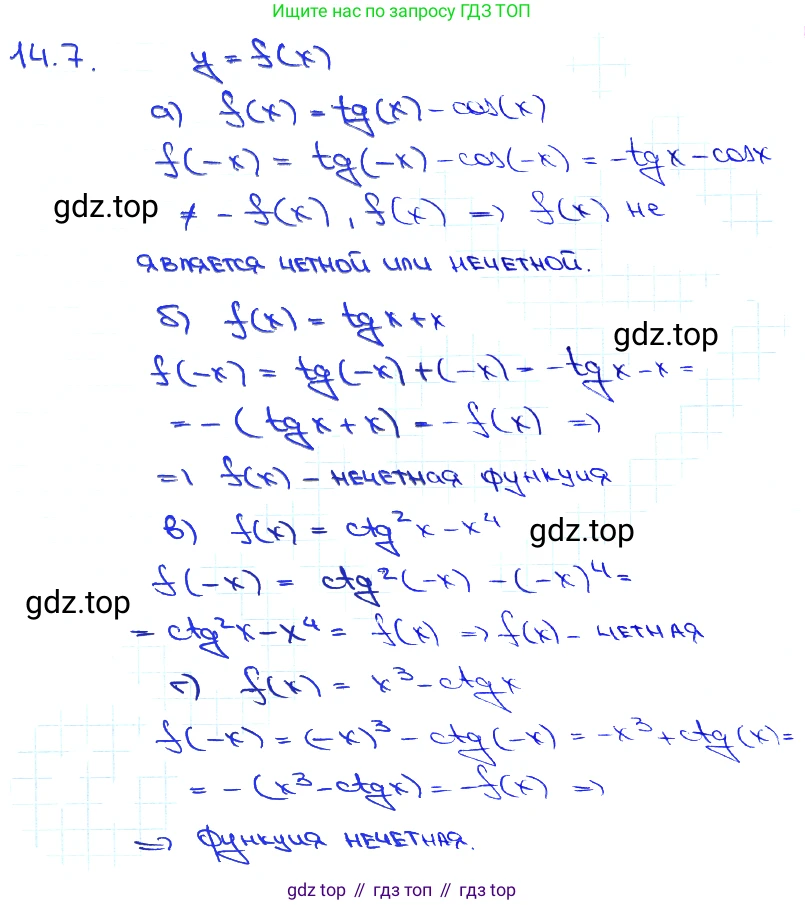 Ищите нас по запросу ГДЗ ТОП
14.7. y = f(x)
а) f(x) = tg(x) - cos(x)
f(-x) = tg(-x) - cos(-x) = -tgx - cosx
gdz.top ≠ - f(x), f(x) => f(x) не
является четной или нечетной.
б) f(x) = tgx + x
gdz.top
f(-x) = tg(-x) + (-x) = -tgx - x =
= -(tgx + x) = -f(x) =>
=> f(x) - нечетная функция
в) f(x) = ctg²x - x⁴ gdz.top
f(-x) = ctg²(-x) - (-x)⁴ =
gdz.top
= ctg²x - x⁴ = f(x) => f(x) - четная
г) f(x) = x³ - ctgx
f(-x) = (-x)³ - ctg(-x) = -x³ + ctg(x) =
= -(x³ - ctgx) = -f(x) =>
=> функция нечетная.
gdz top // гдз топ // gdz top